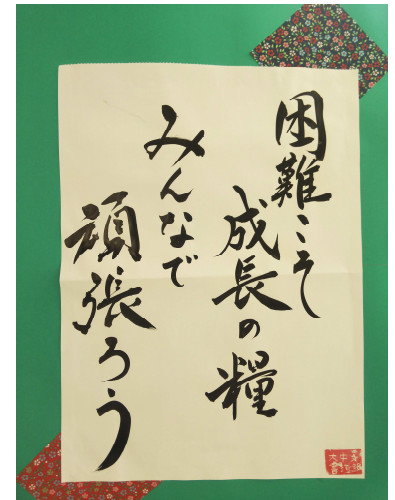 困難こそ
成長の糧
みんなで
頑張ろう